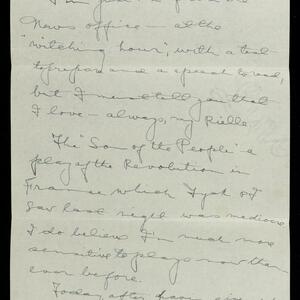 I'm just
News office - at the
"witching hour", with a task
to prepare and a speech to read,
but I must tell you that
I love - always, my
The "Son of the People" - a
play of the Revolution in
France which Fyck & I
saw last night was mediocre
I do believe I'm much more
sensitive to plays now than
ever before.
Today, after